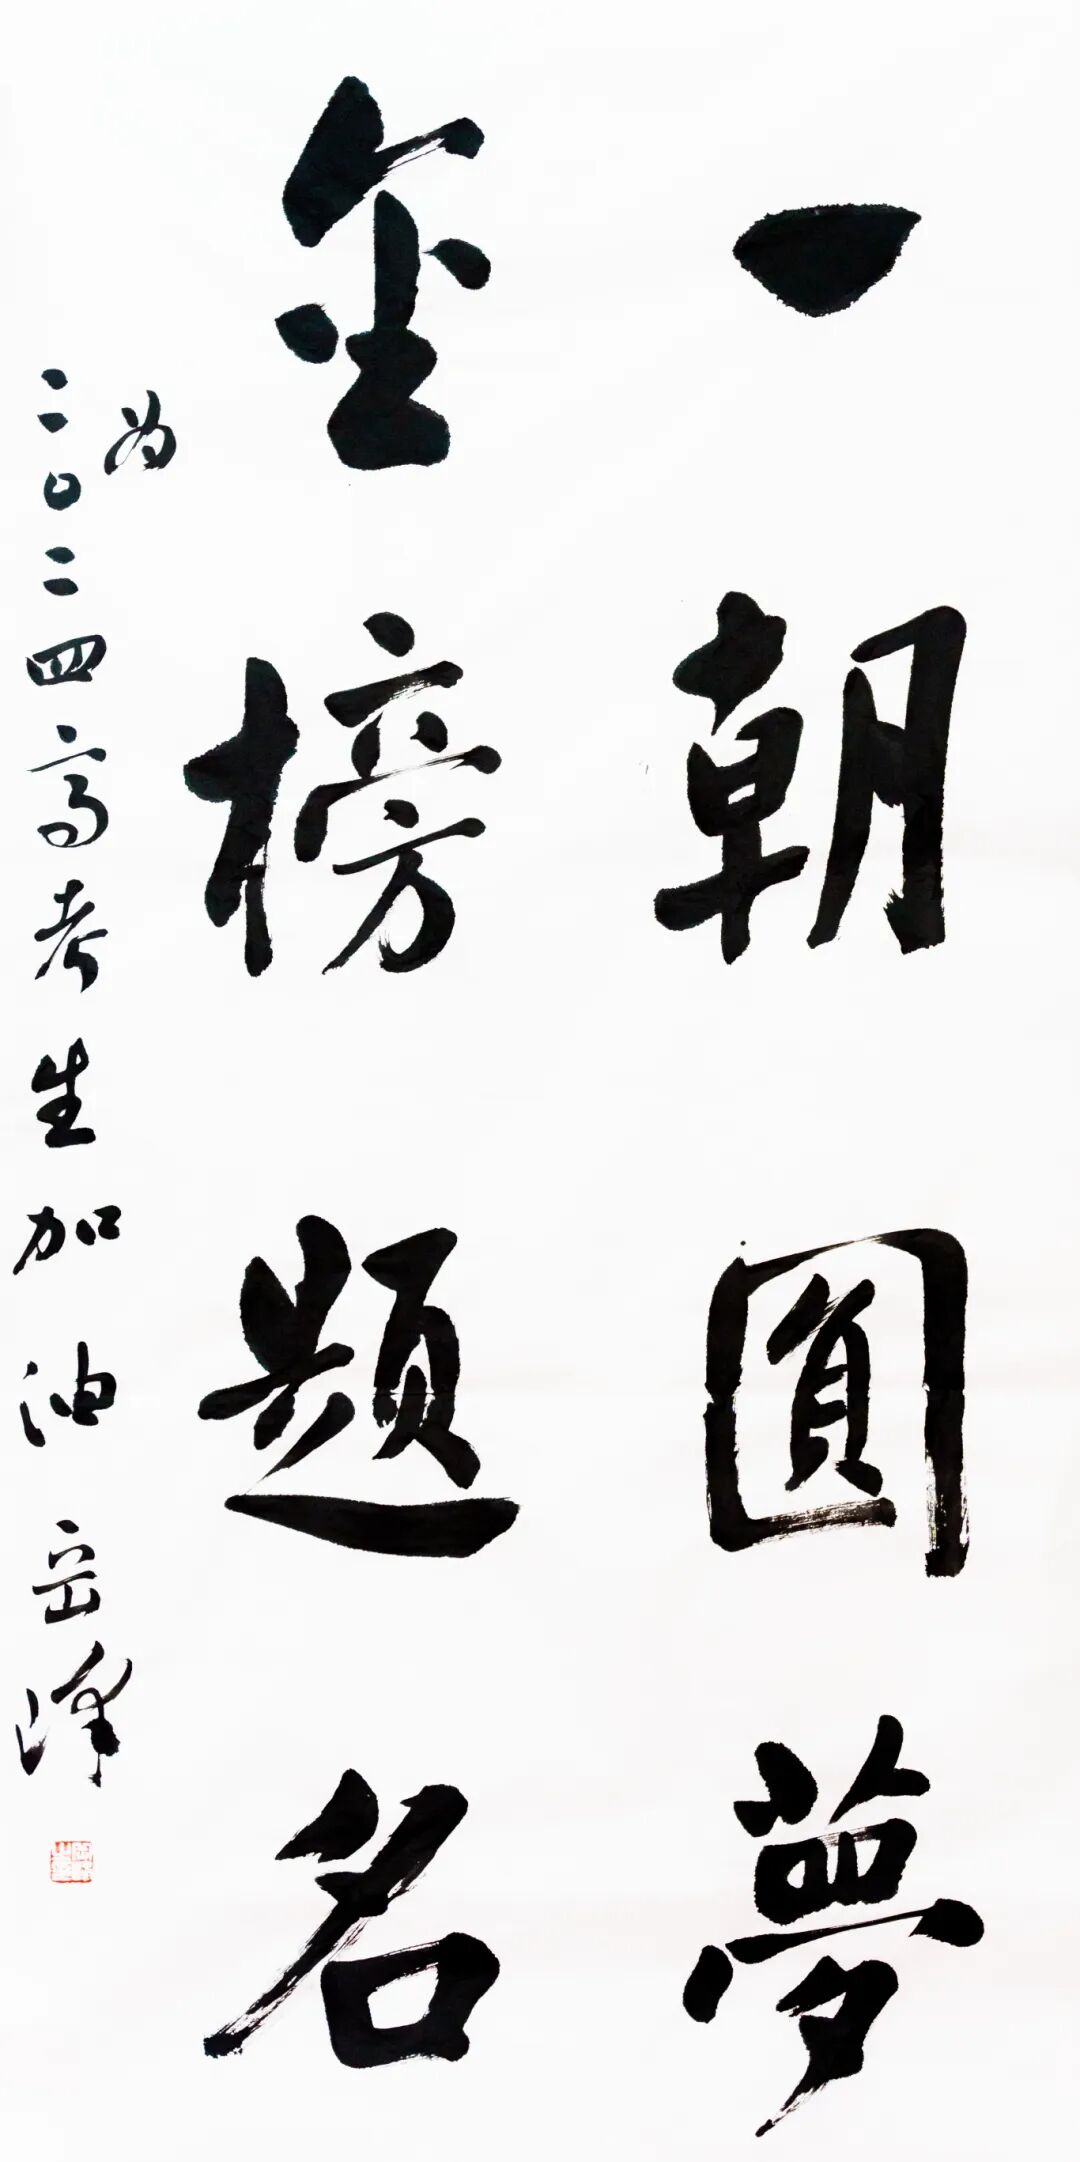 一朝圓夢
金榜題名
为
二〇二四高考生加油 岳峰